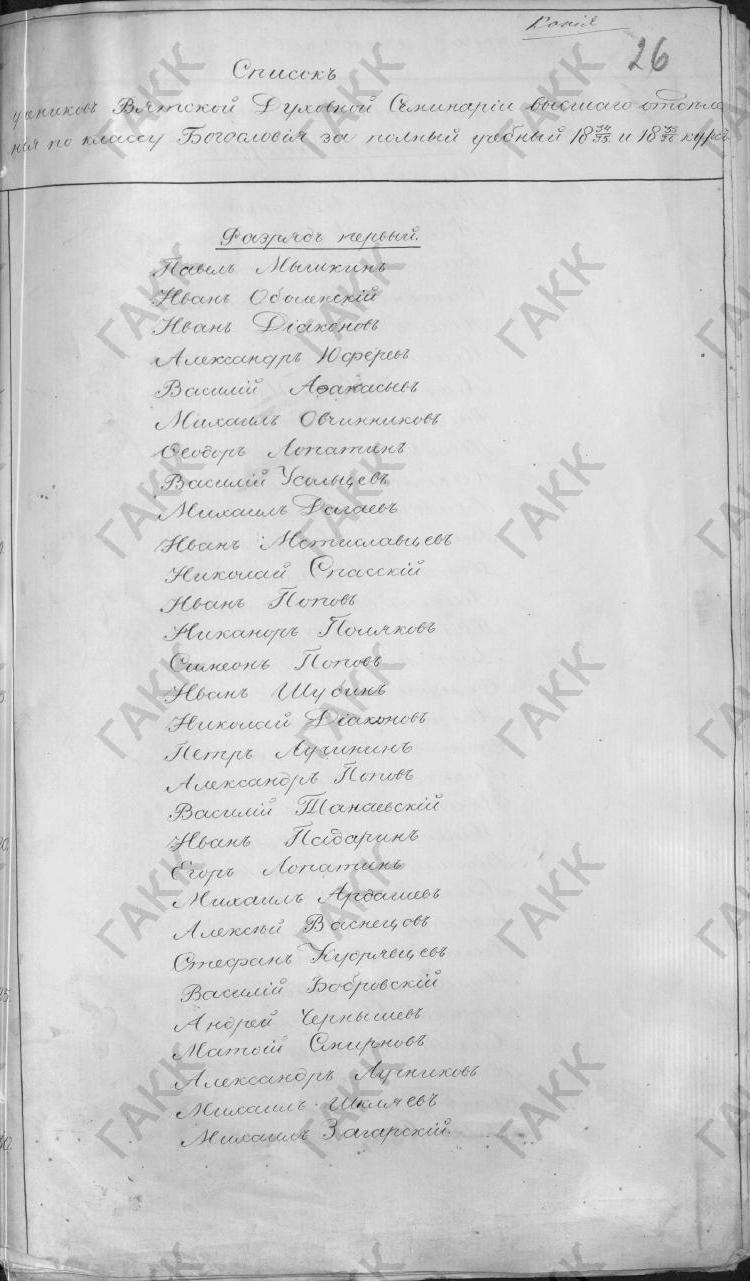 Копія
26
Списокъ
учениковъ Вятской Духовной Семинаріи высшаго отдѣле
нія по классу Богословія за полный учебный 18 34/35 и 18 35/36 курсъ
Разрядъ первый.
Павелъ Мышкинъ
Иванъ Оболенскій
Иванъ Діаконовъ
Александръ Юферевъ
Василій Аѳанасьевъ
Михаилъ Овчинниковъ
Ѳеодоръ Лопатинъ
Василій Усольцевъ
Михаилъ Дягаевъ
Иванъ Мстиславцевъ
Николай Спасскій
Иванъ Поповъ
Никаноръ Поляковъ
Симеонъ Поповъ
Иванъ Шубинъ
Николай Діаконовъ
Петръ Лучининъ
Александръ Поповъ
Василій Танаевскій
Иванъ Падаринъ
Егоръ Лопатинъ
Михаилъ Ардашевъ
Алексѣй Васнецовъ
Стефанъ Кудрявцевъ
Василій Бобровскій
Андрей Чернышевъ
Матѳій Смирновъ
Александръ Лучниковъ
Михаилъ Шкляевъ
Михаилъ Загарскій.
ГАКК